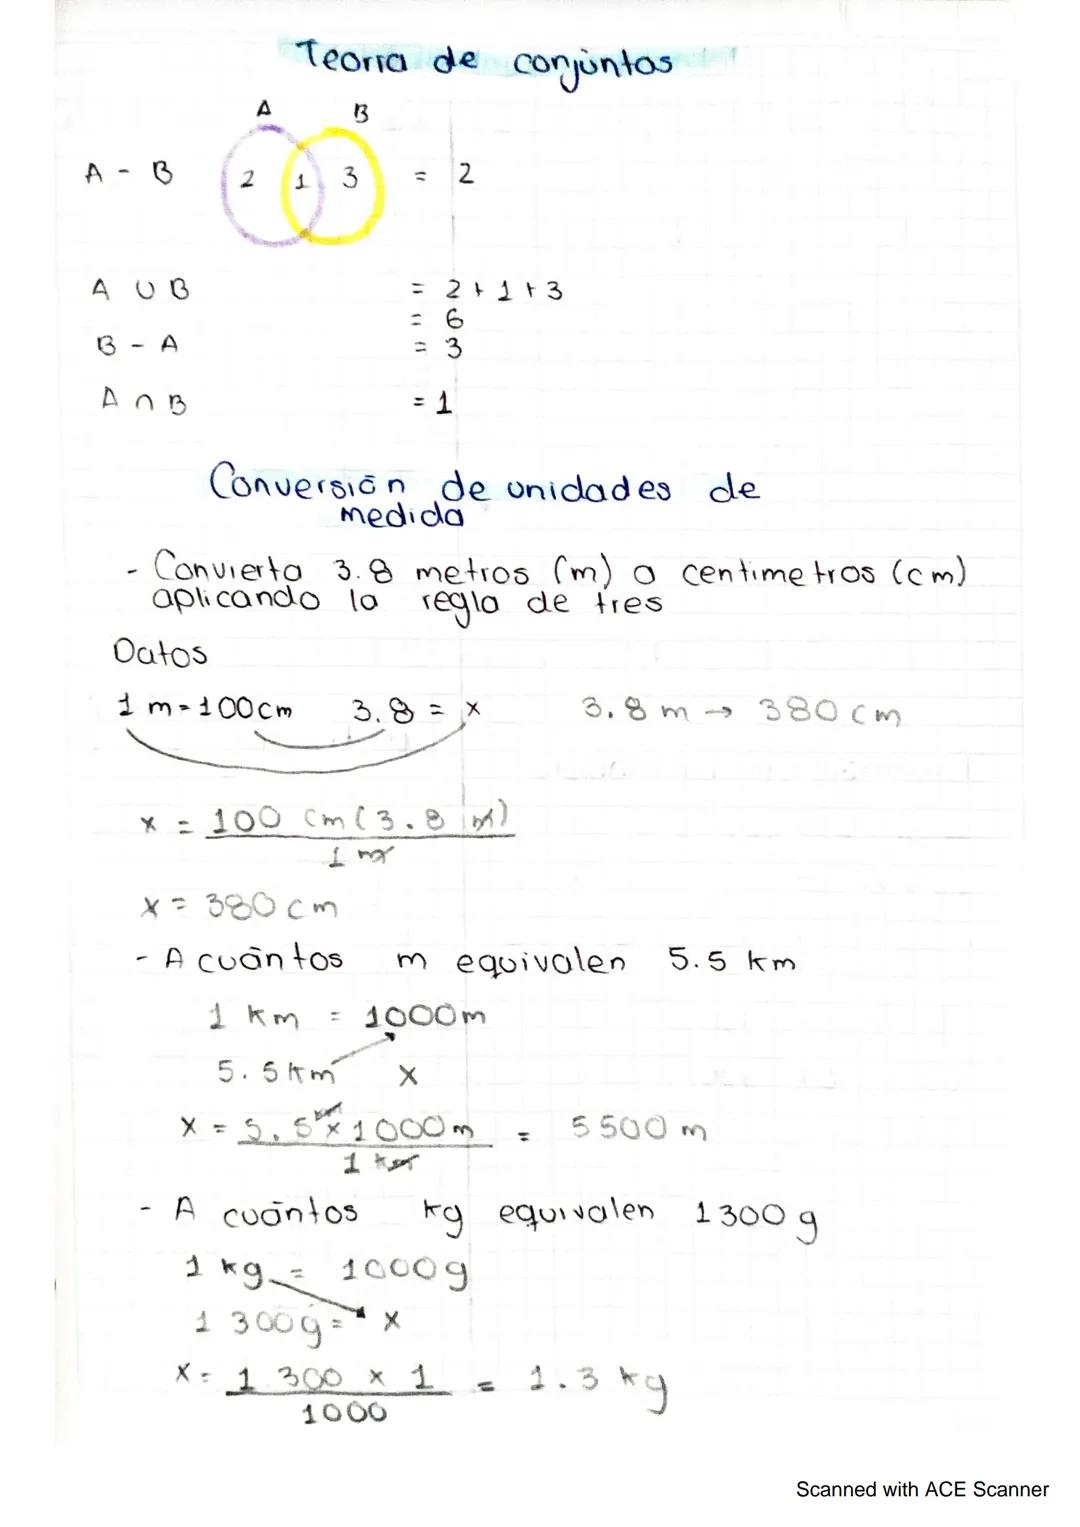 Teoría de conjuntos
A B
A - B 2 1 3 = 2
A ∪ B = 2 + 1 + 3
= 6
B - A = 3
A ∩ B = 1
Conversión de unidades de
medida
- Convierta 3.8 metros (m) a centimetros (cm)
aplicando la regla de tres
Datos
1 m = 100cm 3.8 = x 3.8 m → 380 cm
x = 100 cm (3.8 m)
1 m
x = 380 cm
- A cuántos m equivalen 5.5 km
1 km = 1000m
5.5 km x
x = 5.5 km x 1000 m = 5500 m
1 km
- A cuántos kg equivalen 1300 g
1 kg = 1000g
1300g = x
x = 1300 x 1 = 1.3 kg
1000
Scanned with ACE Scanner